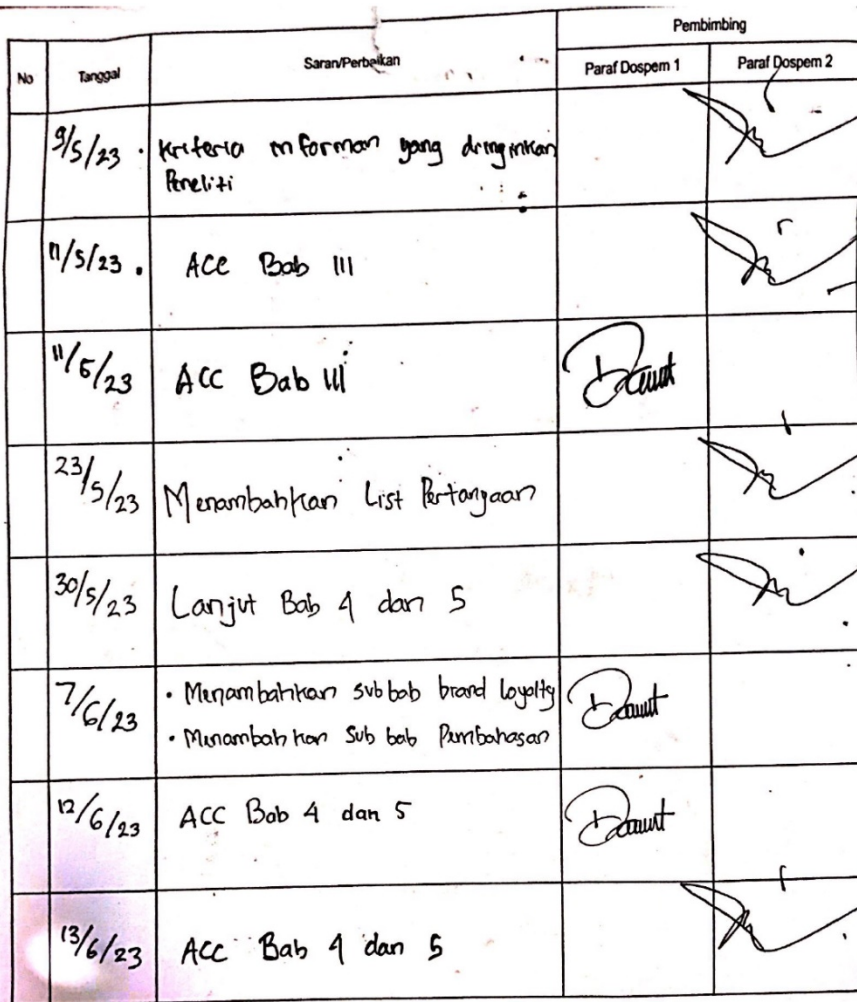 Pembimbing
No Tanggal Saran/Perbaikan Paraf Dospem 1 Paraf Dospem 2
9/5/23 . Kriteria informan yang diinginkan
Peneliti
11/5/23 . ACC Bab III
11/5/23 ACC Bab III
23/5/23 Menambahkan List Pertanyaan
30/5/23 Lanjut Bab 4 dan 5
7/6/23 • Menambahkan sub bab brand loyalty
• Menambahkan Sub bab Pembahasan
12/6/23 ACC Bab 4 dan 5
13/6/23 ACC Bab 4 dan 5